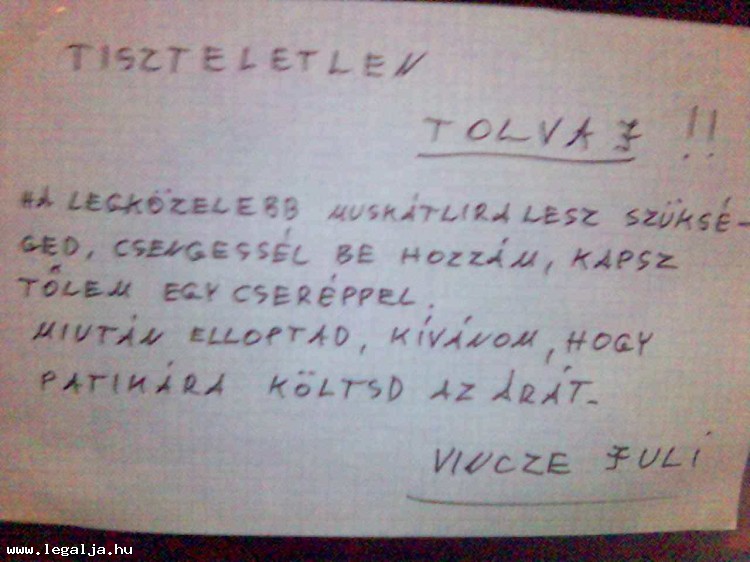 TISZTELETLEN
TOLVAJ !!
HA LEGKÖZELEBB MUSKÁTLIRA LESZ SZÜKSÉ-
GED, CSENGESSÉL BE HOZZÁM, KAPSZ
TŐLEM EGY CSERÉPPEL.
MIUTÁN ELLOPTAD, KÍVÁNOM, HOGY
PATIKÁRA KÖLTSD AZ ÁRÁT.
VINCZE JULI
www.legalja.hu